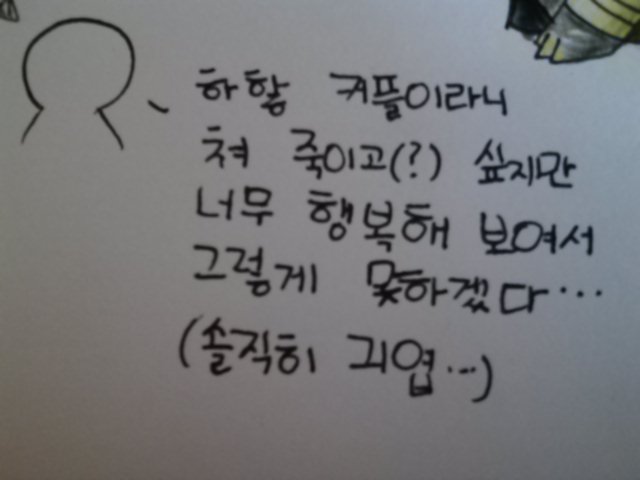 하핳 커플이라니
쳐 죽이고(?) 싶지만
너무 행복해 보여서
그렇게 못하겠다...
(솔직히 긔엽...)